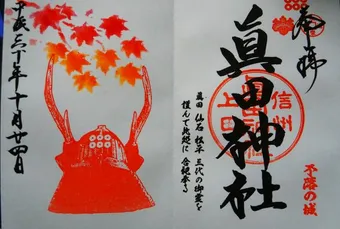 奉拝
眞田神社
信州
上田
不落の城
眞田 仙石 松平 三代の御霊を
謹んで此処に 合祀奉る
平成三十年十月廿四日